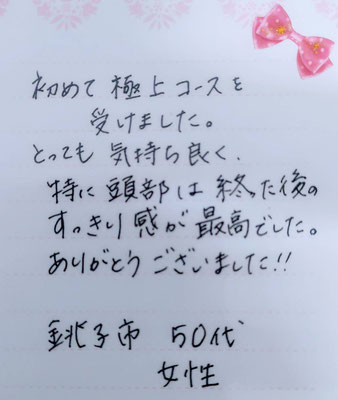 初めて 極上コースを
受けました。
とっても 気持ち良く、
特に 頭部は 終った後の
すっきり感が 最高でした。
ありがとう ございました!!
銚子市 50代
女性